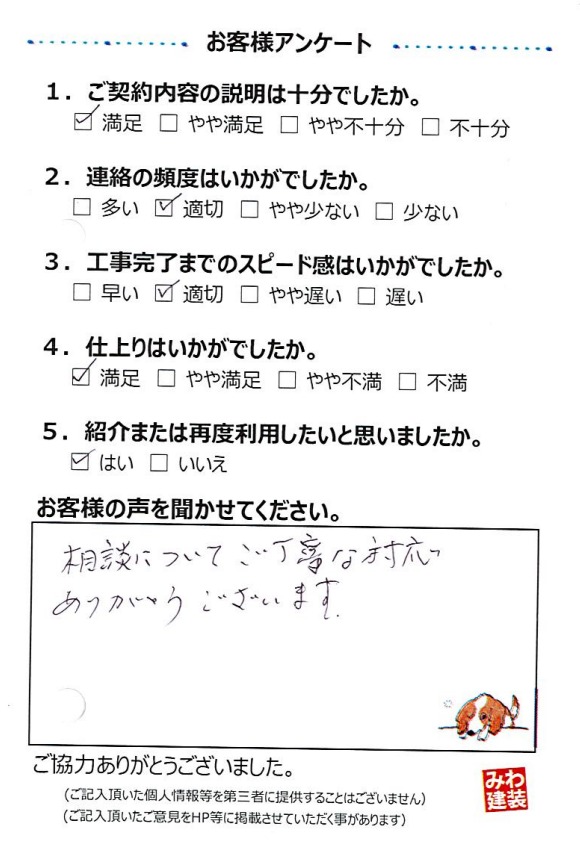 お客様アンケート
1．ご契約内容の説明は十分でしたか。
☑ 満足 □ やや満足 □ やや不十分 □ 不十分
2．連絡の頻度はいかがでしたか。
□ 多い ☑ 適切 □ やや少ない □ 少ない
3．工事完了までのスピード感はいかがでしたか。
□ 早い ☑ 適切 □ やや遅い □ 遅い
4．仕上りはいかがでしたか。
☑ 満足 □ やや満足 □ やや不満 □ 不満
5．紹介または再度利用したいと思いましたか。
☑ はい □ いいえ
お客様の声を聞かせてください。
相談についてご丁寧な対応
ありがとうございます。
ご協力ありがとうございました。
（ご記入頂いた個人情報等を第三者に提供することはございません）
（ご記入頂いたご意見をHP等に掲載させていただく事があります）
みわ
建装